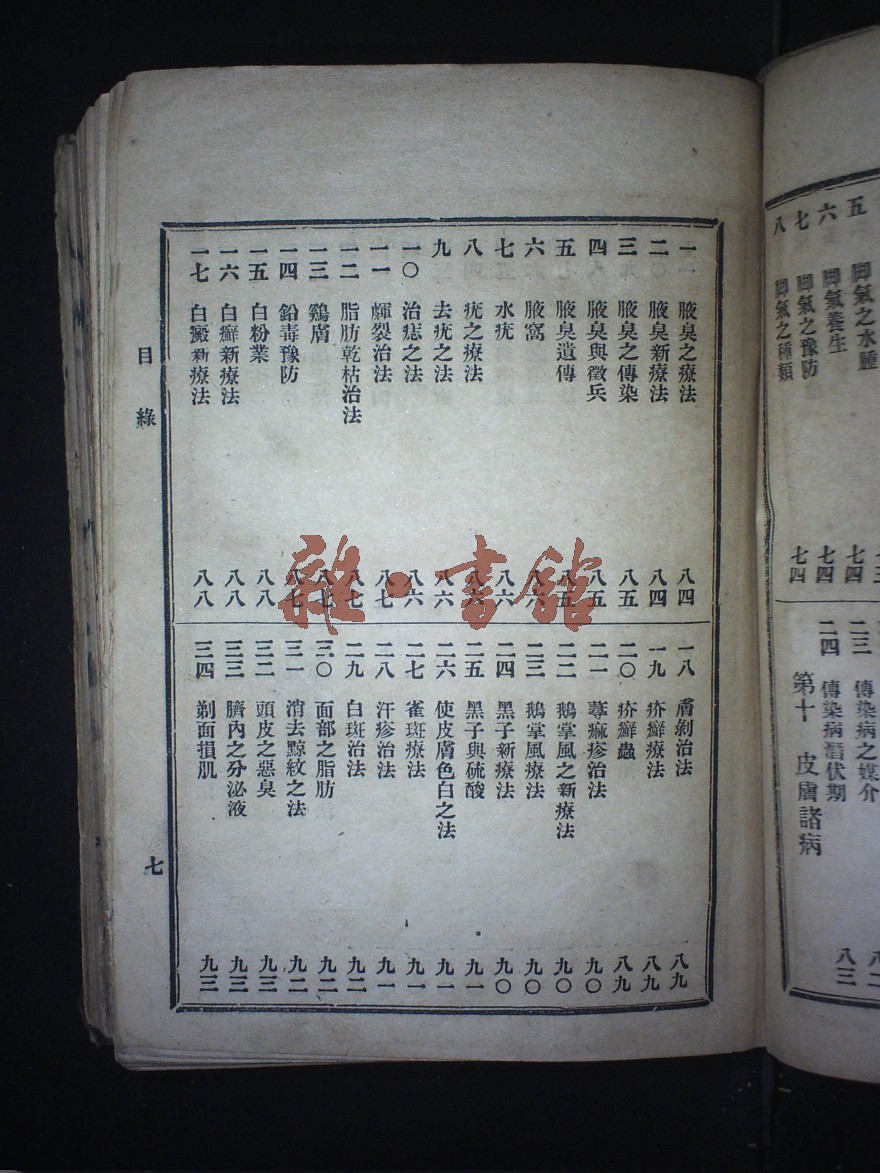 五 脚氣之水腫
六 脚氣養生 七四
七 脚氣之豫防 七四
八 脚氣之種類 七四
傳染病之媒介
二四 傳染病潛伏期 八三
第十 皮膚諸病
腋臭之療法 八四
二 腋臭新療法 八四
三 腋臭之傳染 八五
四 腋臭與徵兵 八五
五 腋臭遺傳 八五
六 腋窩 八六
七 水疣 八六
八 疣之療法 八六
九 去疣之法 八六
一〇 治痣之法 八六
一一 皹裂治法 八七
一二 脂肪乾枯治法 八七
一三 鷄膚 八七
一四 鉛毒豫防 八七
一五 白粉業 八八
一六 白癬新療法 八八
一七 白癜新療法 八八
一八 膚剝治法 八九
一九 疥癬療法 八九
二〇 疥癬蟲 八九
二一 蕁痲疹治法 九〇
二二 鵝掌風之新療法 九〇
二三 鵝掌風療法 九〇
二四 黑子新療法 九〇
二五 黑子與硫酸 九一
二六 使皮膚色白之法 九一
二七 雀斑療法 九一
二八 汗疹治法 九一
二九 白斑治法 九二
三〇 面部之脂肪 九二
三一 消去黥紋之法 九二
三二 頭皮之惡臭 九三
三三 臍內之分泌液 九三
三四 剃面損肌 九三
目錄
七
雜·書館